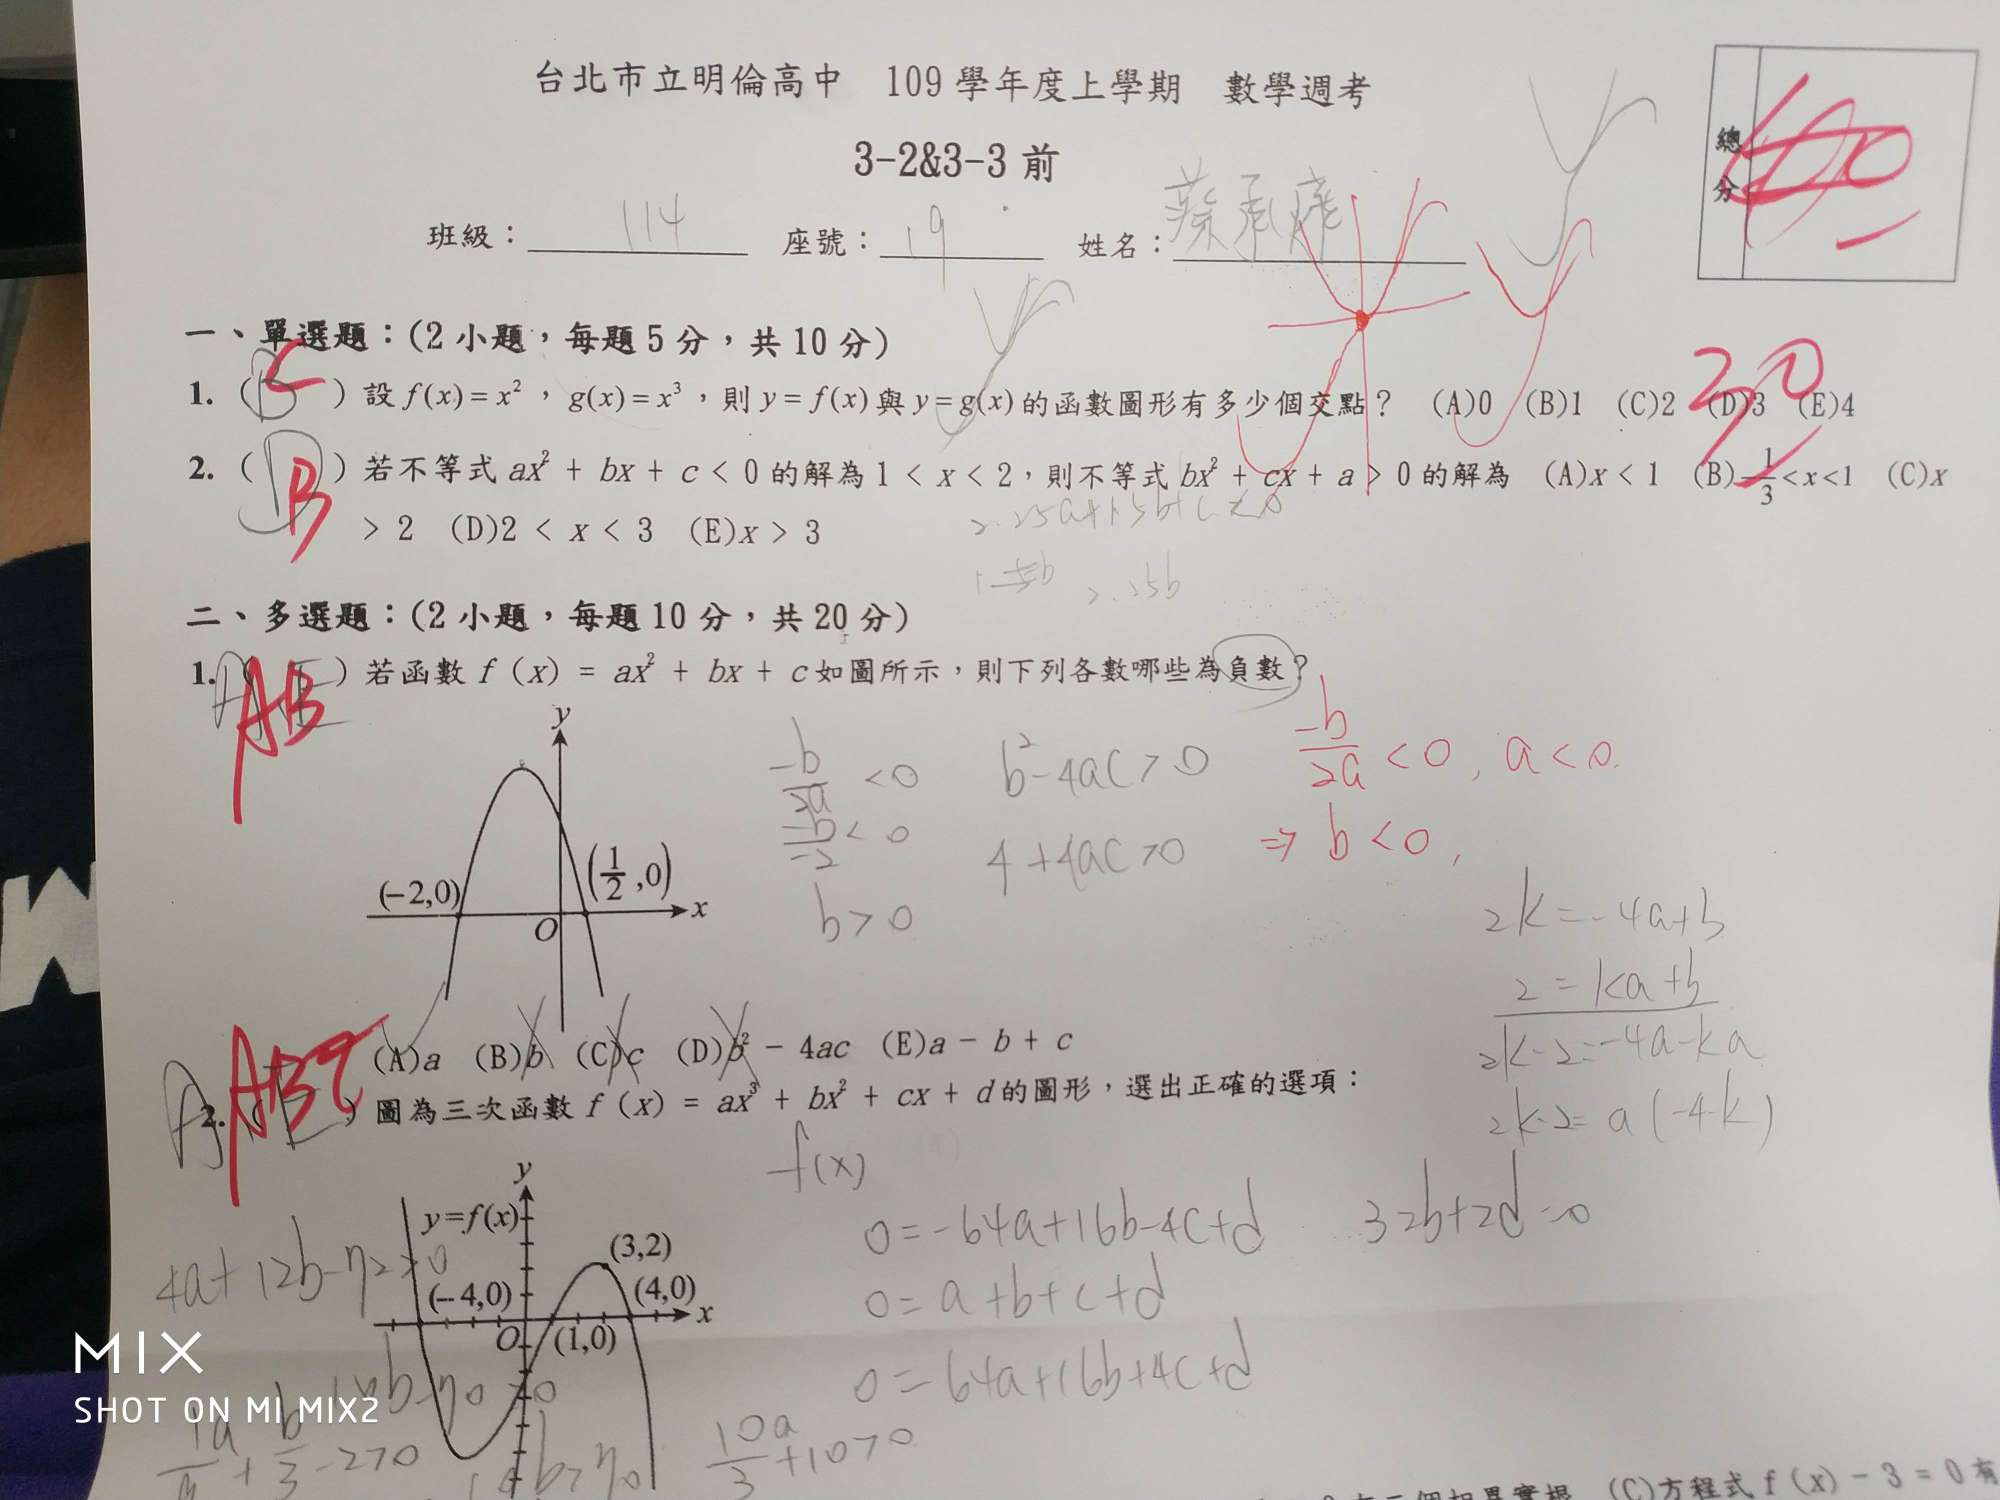 台北市立明倫高中 109 學年度上學期 數學週考
3-2&3-3 前
總分
班級： 114 座號： 19 姓名：蔡承
一、單選題：(2 小題，每題 5 分，共 10 分)
1. ( C ) 設 f(x) = x²，g(x) = x³，則 y = f(x) 與 y = g(x) 的函數圖形有多少個交點？ (A)0 (B)1 (C)2 (D)3 (E)4
30
2. ( B ) 若不等式 ax² + bx + c < 0 的解為 1 < x < 2，則不等式 bx² + cx + a > 0 的解為 (A)x < 1 (B)-1/3<x<1 (C)x
> 2 (D)2 < x < 3 (E)x > 3
2.25a+1.5b+c<0
2.25b
二、多選題：(2 小題，每題 10 分，共 20 分)
1. ( AB ) 若函數 f (x) = ax² + bx + c 如圖所示，則下列各數哪些為負數？
y
(-2,0)
(1/2,0)
O
x
-b/2a < 0
-b/-2 < 0
b > 0
b²-4ac > 0
4+4ac > 0
-b/2a < 0, a < 0.
⇒ b < 0,
2k = -4a+b
2 = ka+b
2k-2 = -4a-ka
2k-2 = a(-4-k)
(A)a (B)b (C)c (D)b² - 4ac (E)a - b + c
2. ( ) 圖為三次函數 f (x) = ax³ + bx² + cx + d 的圖形，選出正確的選項：
f(x)
y
y=f(x)
(3,2)
(-4,0)
(4,0)
x
O
(1,0)
0 = -64a+16b-4c+d
32b+2d=0
0 = a+b+c+d
0 = 64a+16b+4c+d
10a/3 +10>0
(C)方程式 f (x) - 3 = 0 有
MIX
SHOT ON MI MIX2